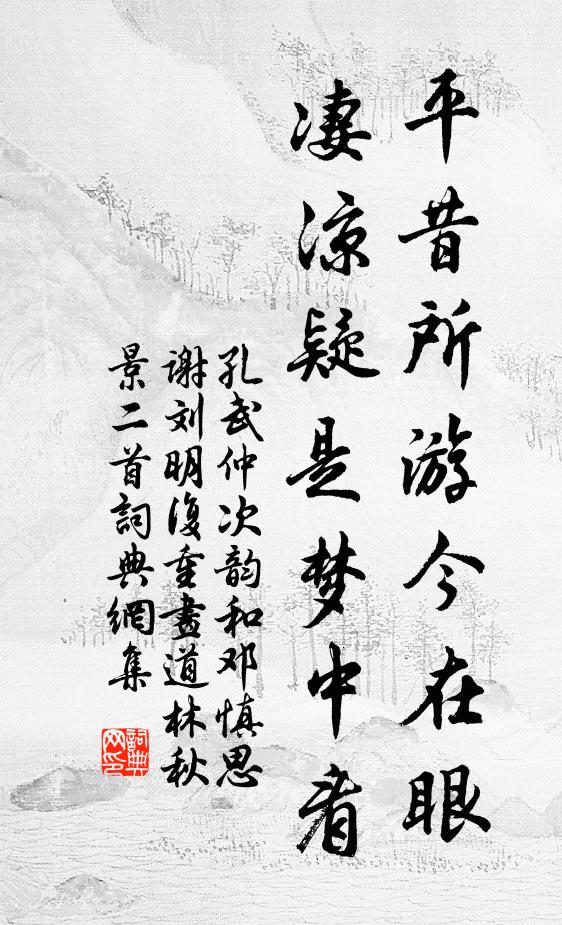 平昔所游今在眼
凄涼疑是梦中看
孔武仲次韵和邓慎思
谢刘明復重畫道林秋
景二首詞典網集
詞典网印